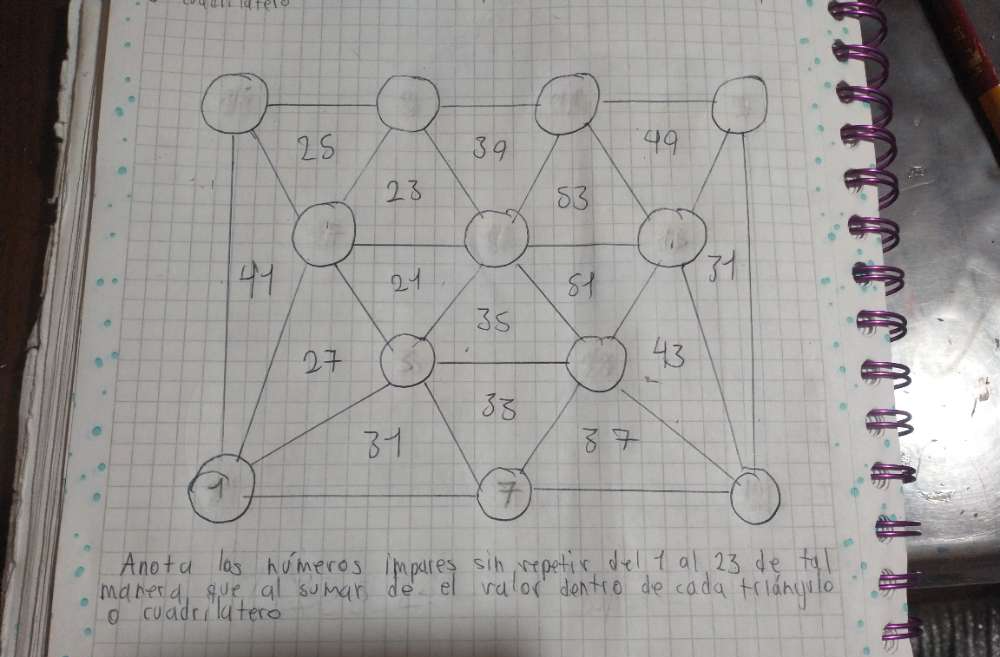 cuadrilatero
25
39
49
23
53
41
21
51
31
35
27
43
33
31
37
1
7
Anota los números impares sin repetir del 1 al 23 de tal
manera que al sumar de el valor dentro de cada triángulo
o cuadrilatero